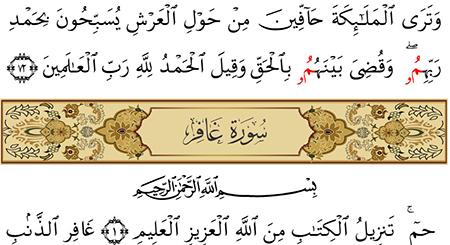 وَتَرَى ٱلْمَلَٰٓئِكَةَ حَآفِّينَ مِنْ حَوْلِ ٱلْعَرْشِ يُسَبِّحُونَ بِحَمْدِ
رَبِّهِمُۥۖ وَقُضِىَ بَيْنَهُمُۥ بِٱلْحَقِّ وَقِيلَ ٱلْحَمْدُ لِلَّهِ رَبِّ ٱلْعَٰلَمِينَ ٧٢
سُورَةُ غَافِرٍ
بِسْمِ ٱللَّهِ ٱلرَّحْمَٰنِ ٱلرَّحِيمِ
حمٓۚ تَنزِيلُ ٱلْكِتَٰبِ مِنَ ٱللَّهِ ٱلْعَزِيزِ ٱلْعَلِيمِ ١ غَافِرِ ٱلذَّنۢبِ